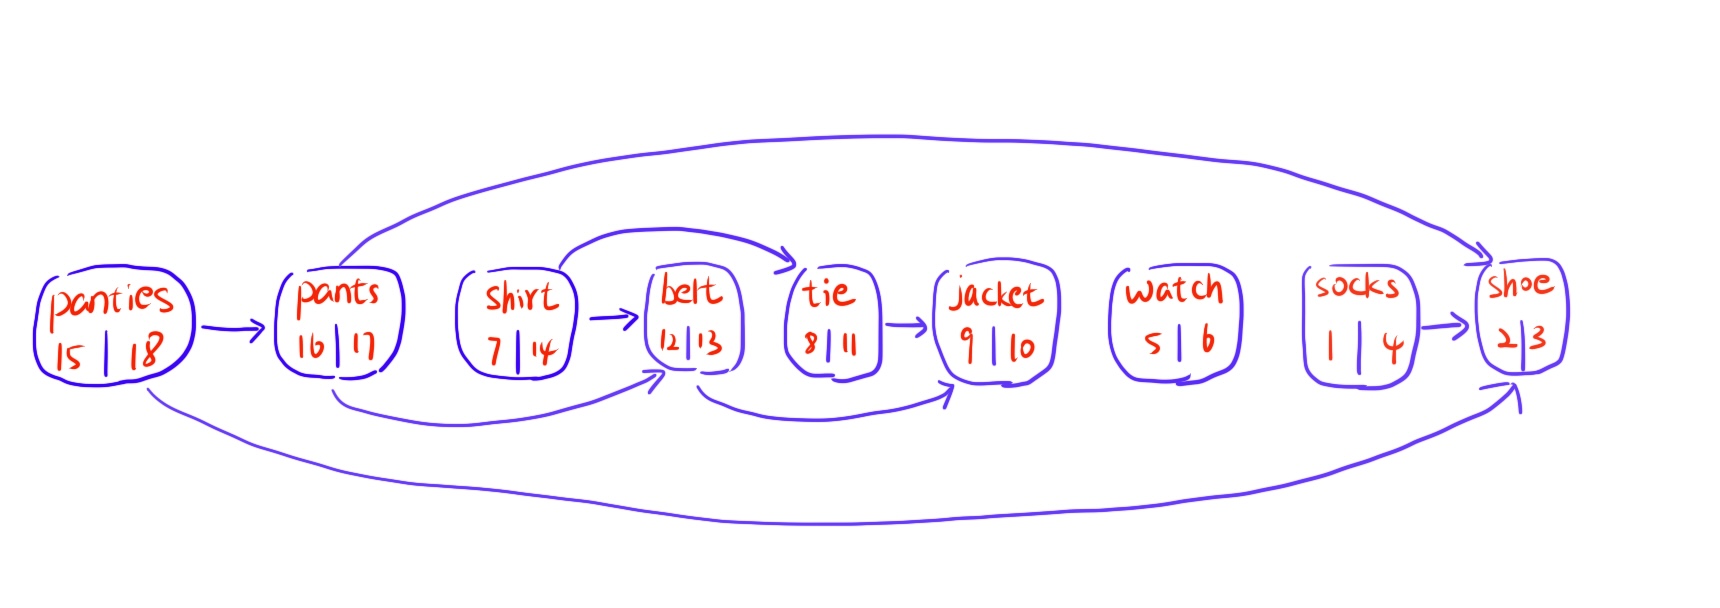 panties
15 | 18
pants
16 | 17
shirt
7 | 14
belt
12 | 13
tie
8 | 11
jacket
9 | 10
watch
5 | 6
socks
1 | 4
shoe
2 | 3